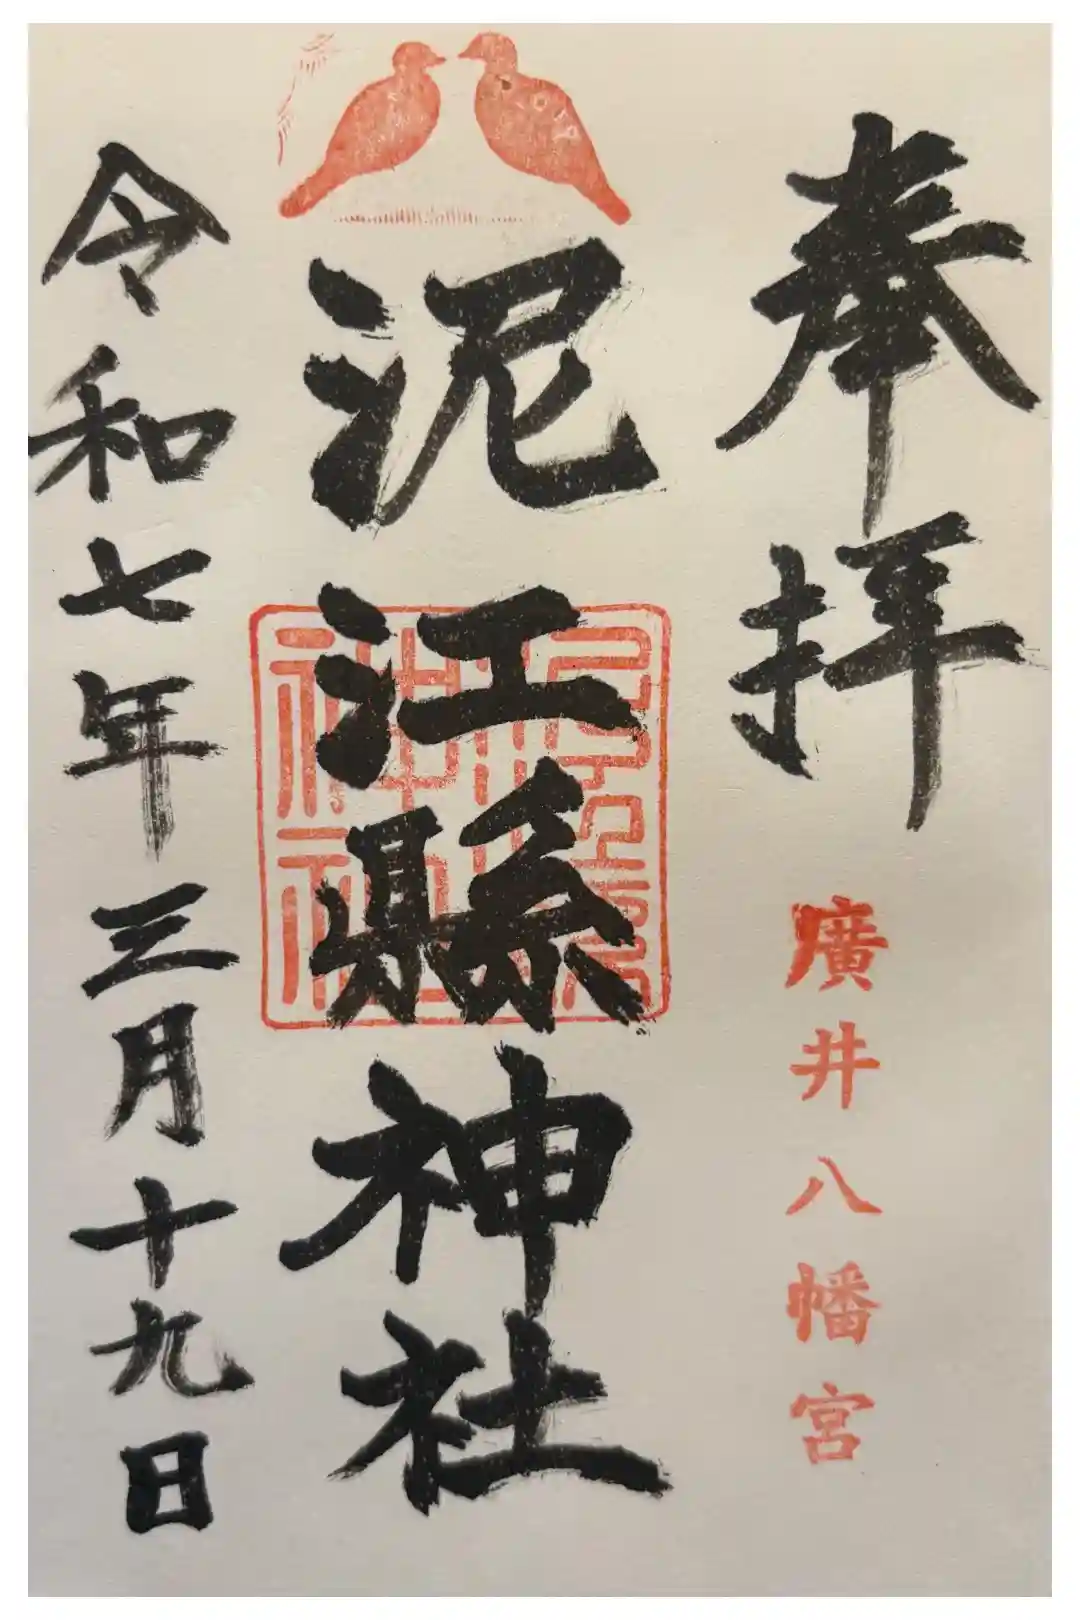 奉拝
廣井八幡宮
泥江縣神社
令和七年三月十九日